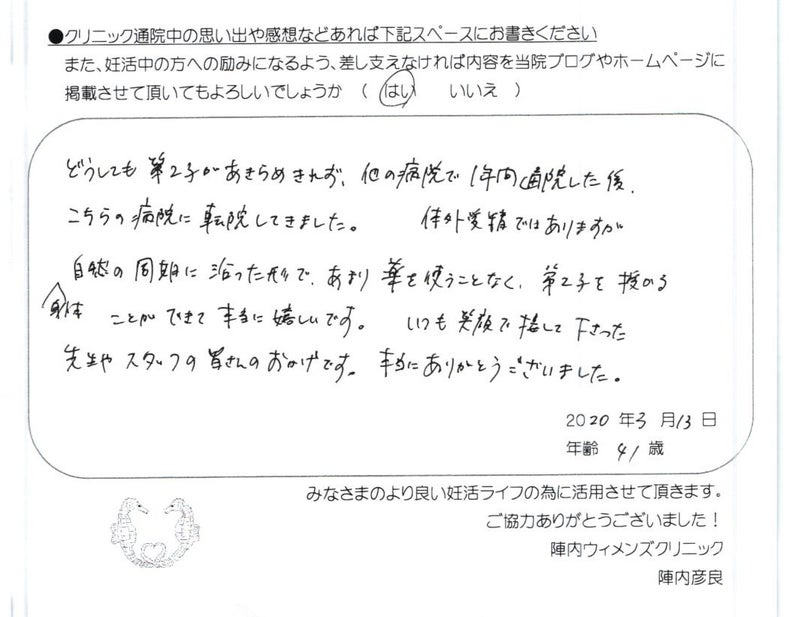 ●クリニック通院中の思い出や感想などあれば下記スペースにお書きください
また、妊活中の方への励みになるよう、差し支えなければ内容を当院ブログやホームページに
掲載させて頂いてもよろしいでしょうか （ はい　いいえ ）
どうしても 第2子があきらめきれず、他の病院で 1年間通院した後、
こちらの病院に 転院してきました。 体外受精ではありますが
自然の周期に沿った形で、あまり 薬を使うことなく、第2子を 授かる
身体 ことができて 本当に嬉しいです。 いつも 笑顔で接して下さった
先生や スタッフの皆さんのおかげです。 本当にありがとうございました。
2020 年 3 月 13 日
年齢 41 歳
みなさまのより良い妊活ライフの為に活用させて頂きます。
ご協力ありがとうございました！
陣内ウィメンズクリニック
陣内彦良